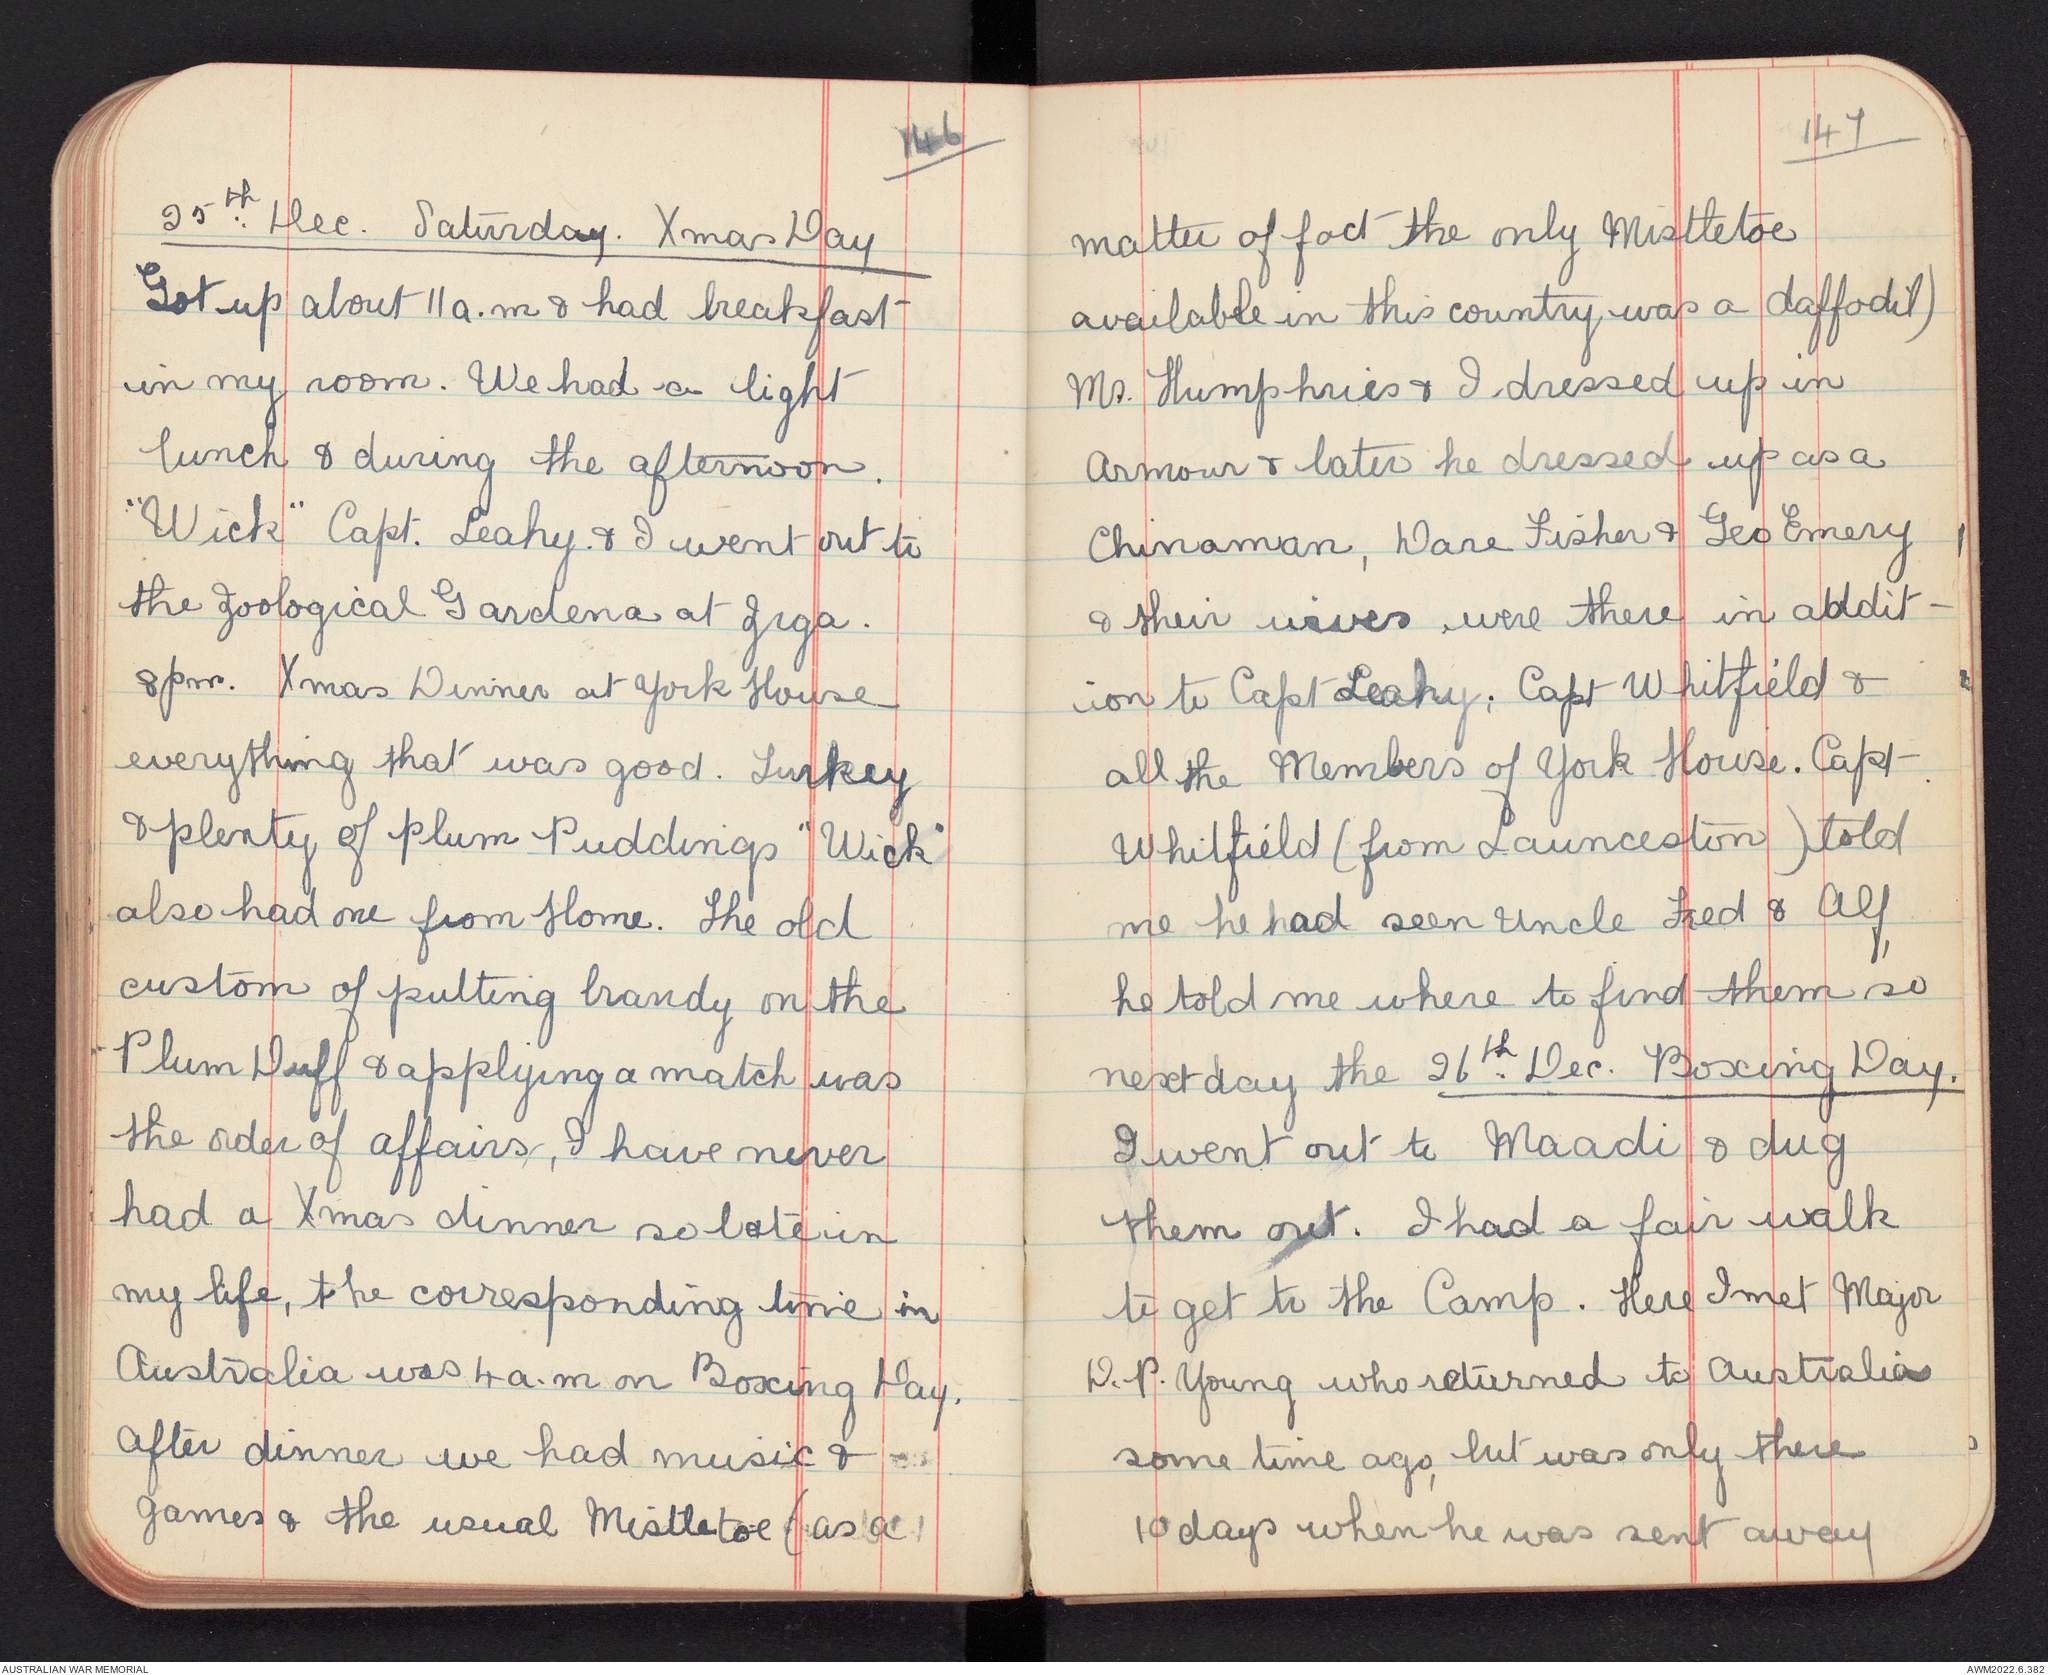 146
25th. Dec. Saturday. Xmas Day
Got up about 11 a.m & had breakfast
in my room. We had a light
lunch & during the afternoon.
"Wick" Capt. Leahy. & I went out to
the Zoological Gardens at Ziga.
8 pm. Xmas Dinner at York House
everything that was good. Turkey
& plenty of Plum Puddings "Wick"
also had one from Home. The old
custom of putting brandy on the
Plum Duff & applying a match was
the order of affairs, I have never
had a Xmas dinner so late in
my life, the corresponding time in
Australia was 4 a.m on Boxing Day.
After dinner we had music &
games & the usual Mistletoe (as a
147
matter of fact the only Mistletoe
available in this country was a daffodil)
Mr. Humphries & I dressed up in
Armour & later he dressed up as a
Chinaman, Dare Fisher & Geo Emery
& their wives were there in addit-
ion to Capt Leahy; Capt Whitfield &
all the Members of York House. Capt.
Whitfield (from Launceston) told
me he had seen Uncle Fred & Alf,
he told me where to find them so
next day the 26th. Dec. Boxing Day.
I went out to Maadi & dug
them out. I had a fair walk
to get to the Camp. Here I met Major
D.P. Young who returned to Australia
some time ago, but was only there
10 days when he was sent away
AUSTRALIAN WAR MEMORIAL
AWM2022.6.382